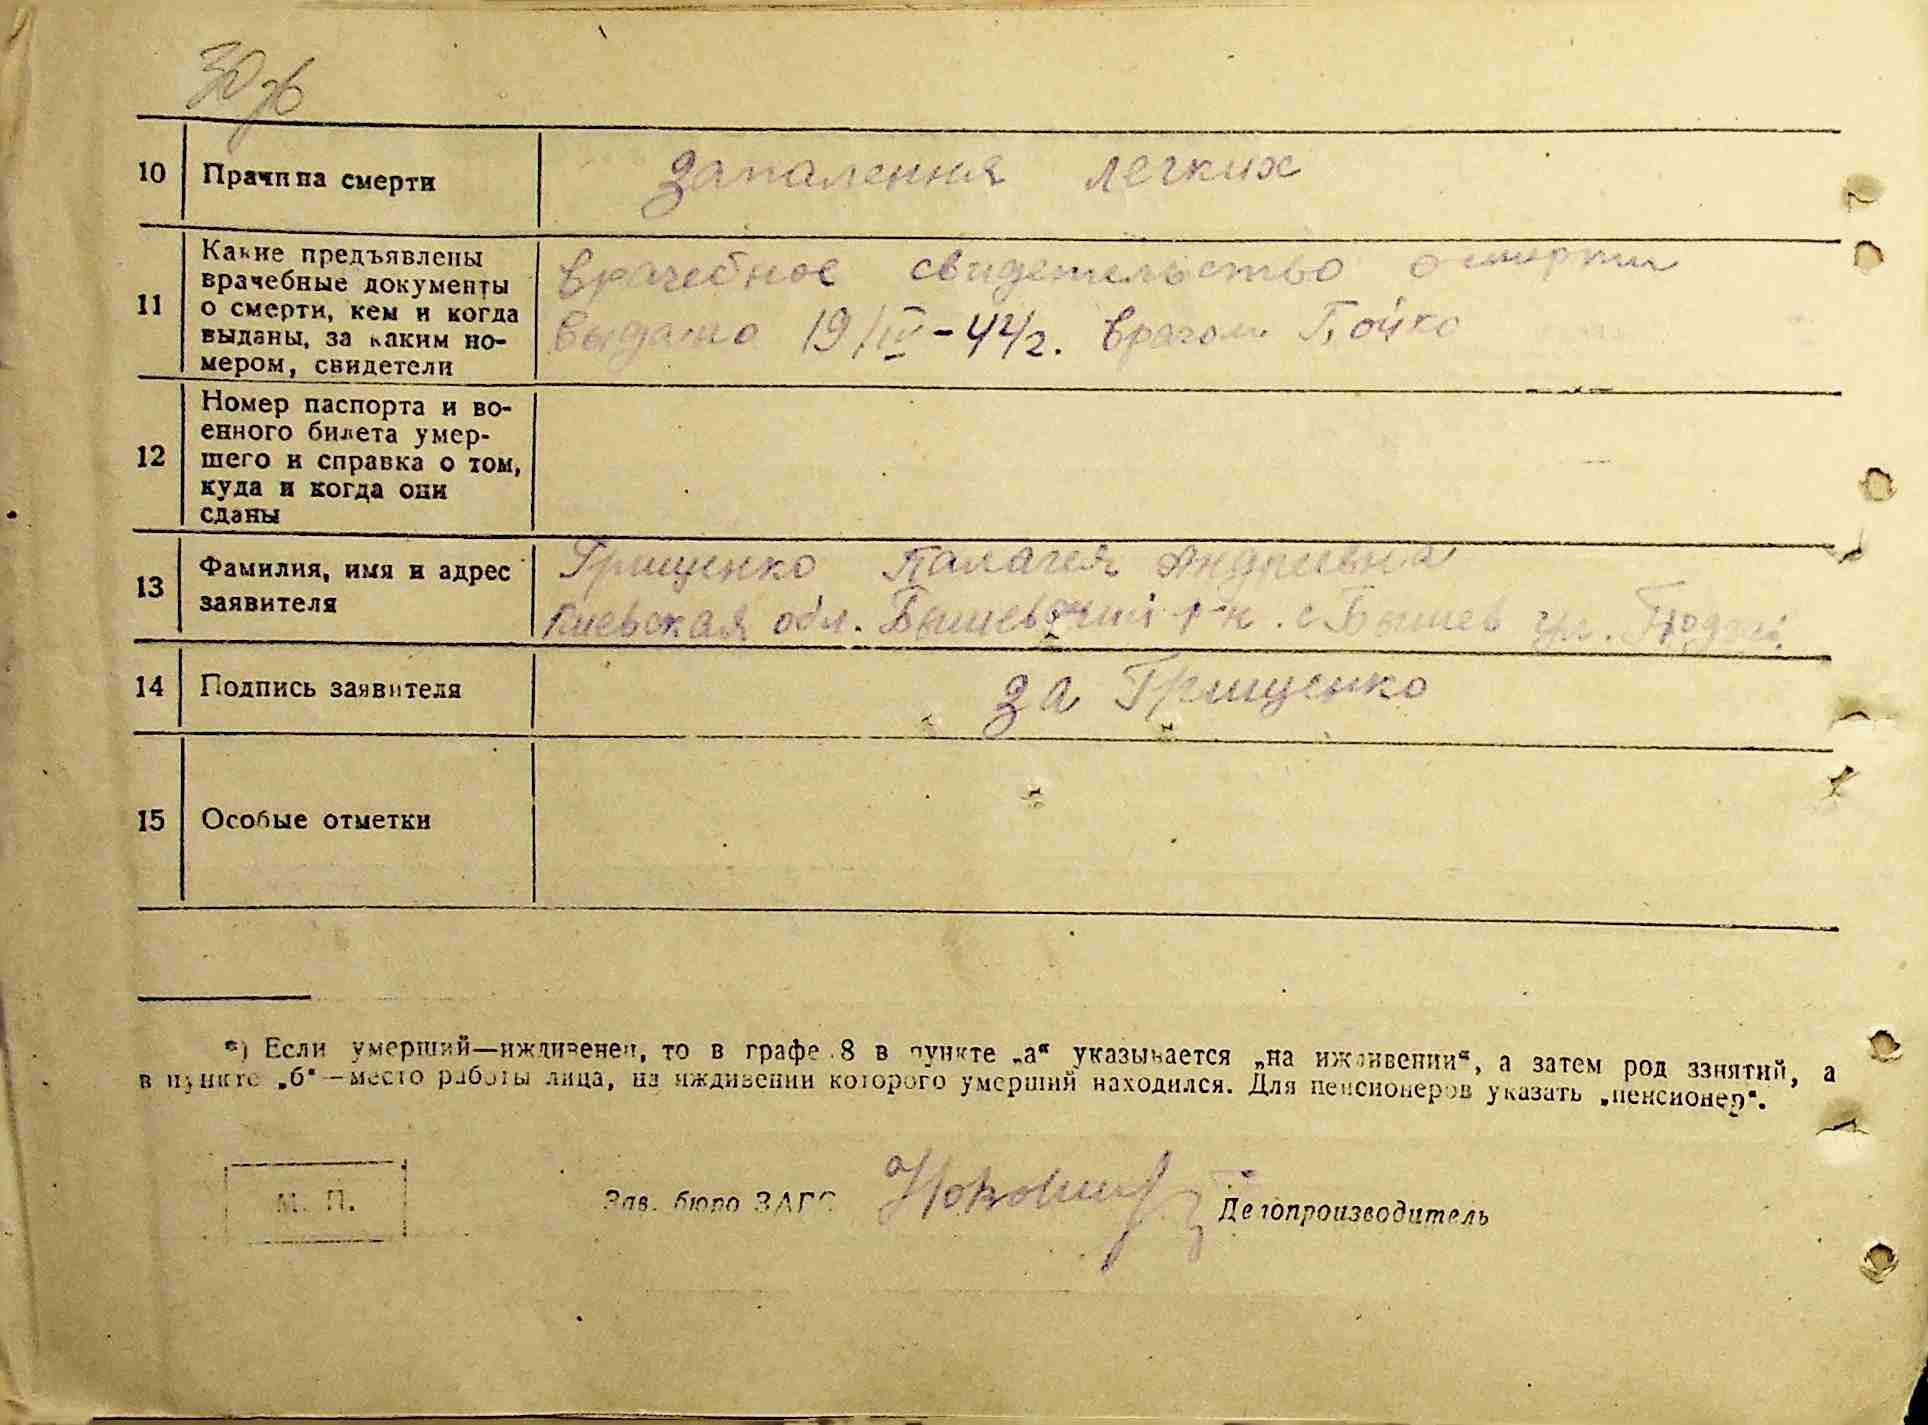 30 зв
10 Причина смерти запалення легких
11 Какие предъявлены врачебные документы о смерти, кем и когда выданы, за каким но-
мером, свидетели
врачебное свидетельство о смерти
выдано 19/IV-44г. врачом Бойко
12 Номер паспорта и во-
енного билета умер-
шего и справка о том,
куда и когда они
сданы
13 Фамилия, имя и адрес
заявителя
Грищенко Палагея Андреевна
Киевская обл. Бышевский р-н. с Бышев ул.
14 Подпись заявителя за Грищенко
15 Особые отметки
*) Если умерший—иждивенец, то в графе 8 в пункте „а“ указывается „на иждивении“, а затем род занятий, а
в пункте „б“—место работы лица, на иждивении которого умерший находился. Для пенсионеров указать „пенсионер“.
М. П. Зав. бюро ЗАГС Делопроизводитель